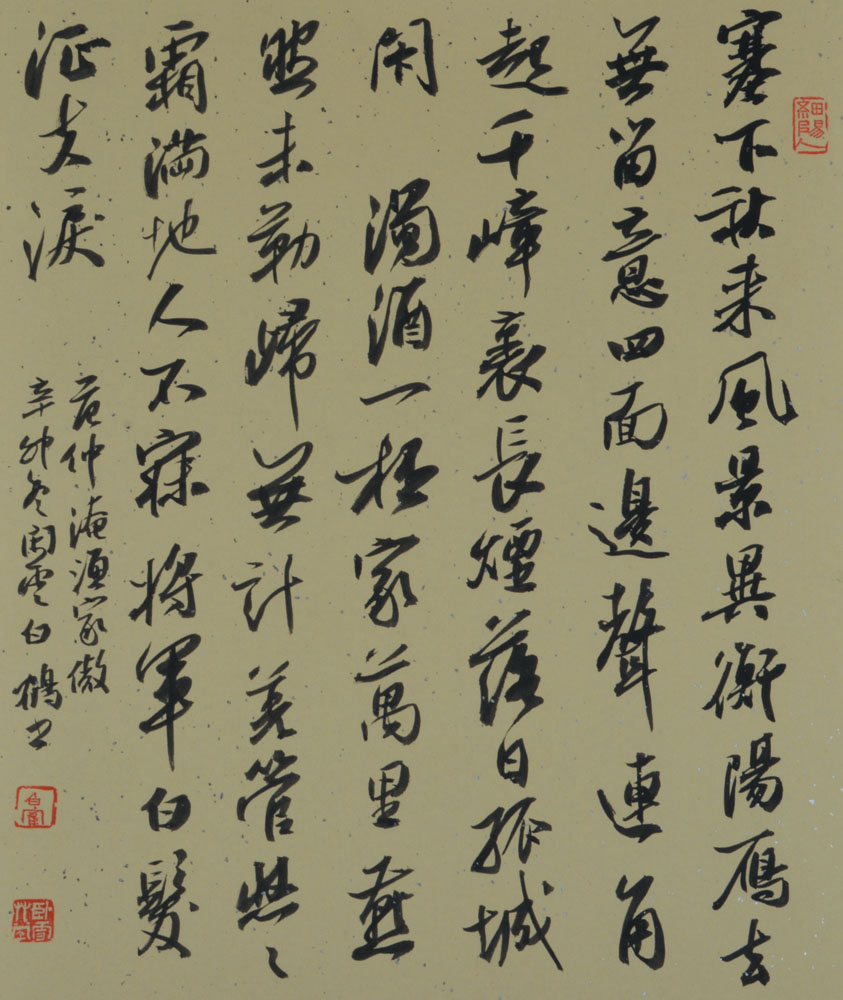 細陽人
塞下秋来風景異衡陽雁去
無留意四面邊聲連角
起千嶂裏長煙落日孤城
閑 濁酒一杯家萬里燕
然未勒歸無計羌管悠々
霜滿地人不寐將軍白髮
征夫淚
范仲淹漁家傲
辛卯冬周雲白鶴書